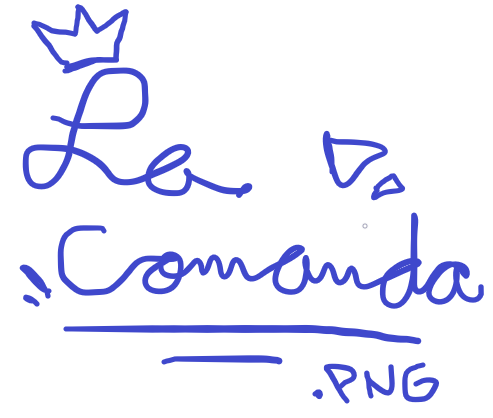 La
Comanda
.PNG